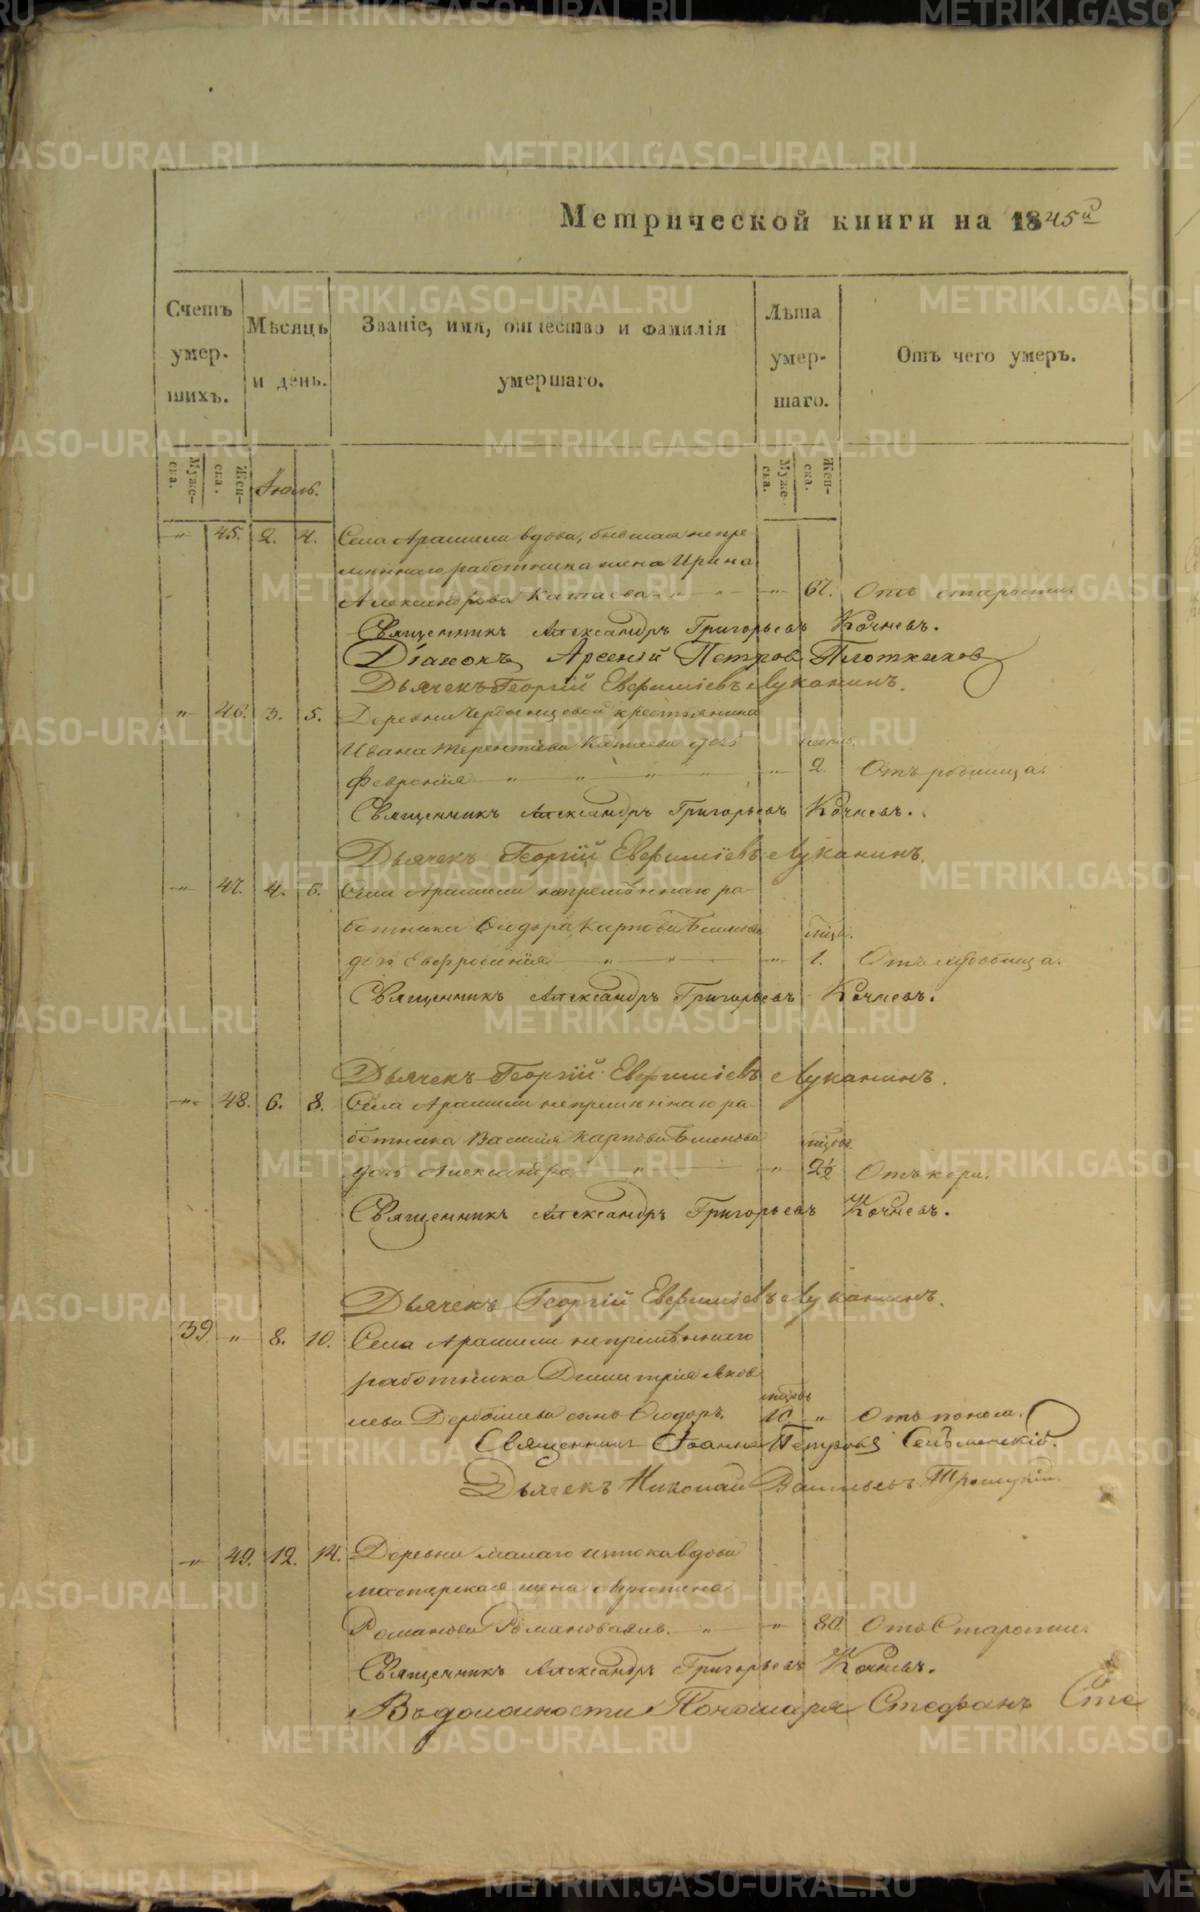 METRIKI.GASO-URAL.RU
Метрической книги на 1845й
Счетъ умер- шихъ.
Мѣсяцъ и день.
Званіе, имя, отчество и фамилія умершаго.
Лѣта умер- шаго.
Отъ чего умеръ.
Муже- ска.
Жен- ска.
Іюль.
Муже- ска.
Жен- ска.
„ 45. 2. 4. Села Арамили вдова, бывшая непре-
мѣннаго работника жена Ирина
Александрова Катаева „ 67. Отъ старости.
Священникъ Александръ Григорьевъ Кочневъ.
Діаконъ Арсеній Петровъ Плотниковъ
Дьячекъ Георгій Евфиміевъ Луканинъ.
„ 46. 3. 5. Деревни крестьянина
Ивана Терентьева Катаева дочь
Февронія „ „ „ „ „ 2 Отъ родимца.
Священникъ Александръ Григорьевъ Кочневъ.
Дьячекъ Георгій Евфиміевъ Луканинъ.
„ 47. 4. 6. Села Арамили непремѣннаго ра-
ботника Сидора Карпова
дочь Евфросинія „ „ „ 1. Отъ
Священникъ Александръ Григорьевъ Кочневъ.
Дьячекъ Георгій Евфиміевъ Луканинъ.
„ 48. 6. 8. Села Арамили непремѣннаго ра-
ботника Василія Карпова
дочь Александра „ „ 2½ Отъ кори.
Священникъ Александръ Григорьевъ Кочневъ.
Дьячекъ Георгій Евфиміевъ Луканинъ.
39. „ 8. 10. Села Арамили непремѣннаго
работника Димитрія Яков
лева Дербышева сынъ Ѳеодоръ. 10 „ Отъ поноса.
Священникъ Іоаннъ Петровъ
Дьячекъ Николай Васильевъ Троицкій.
„ 49. 12. 14. Деревни малаго истока вдова
мастерская жена
Романова „ „ 80. Отъ Старости.
Священникъ Александръ Григорьевъ Кочневъ.
Въ должности Пономаря Стефанъ Сте